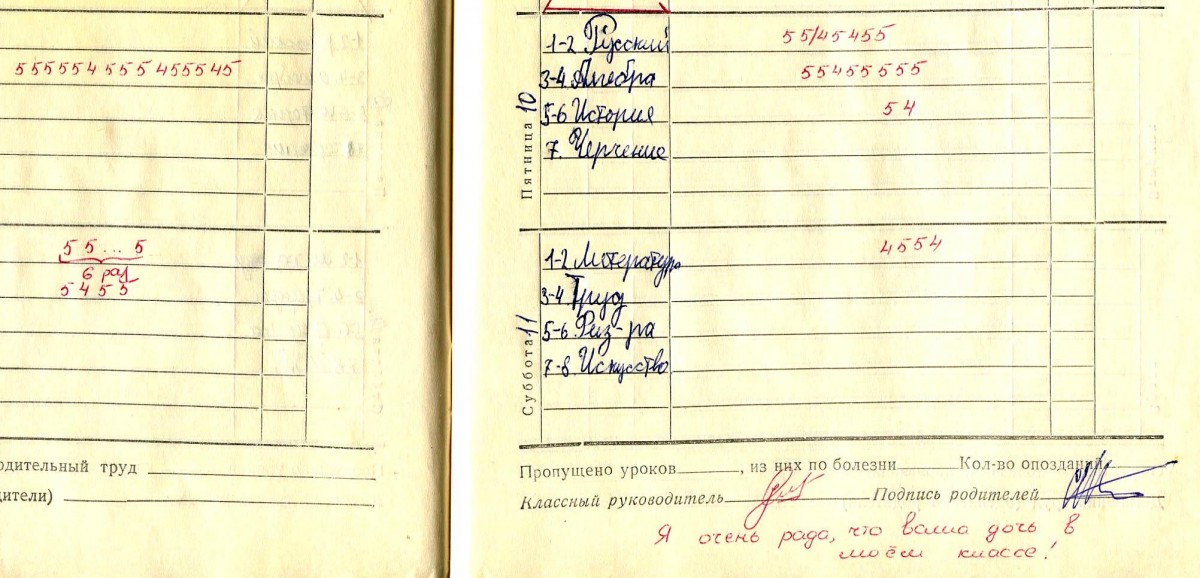 555554 555 455545
5 5 ... 5
6 раз
5 4 5 5
одительный труд
дители)
Пятница 10
1-2. Русский 55/45455
3-4. Алгебра 55455555
5-6 История 54
7. Черчение
Суббота 11
1-2 Литература 4554
3-4. Труд
5-6. Физ-ра
7-8. Искусство
Пропущено уроков, из них по болезни Кол-во опозданий
Классный руководитель Подпись родителей
Я очень рада, что ваша дочь в
моём классе!